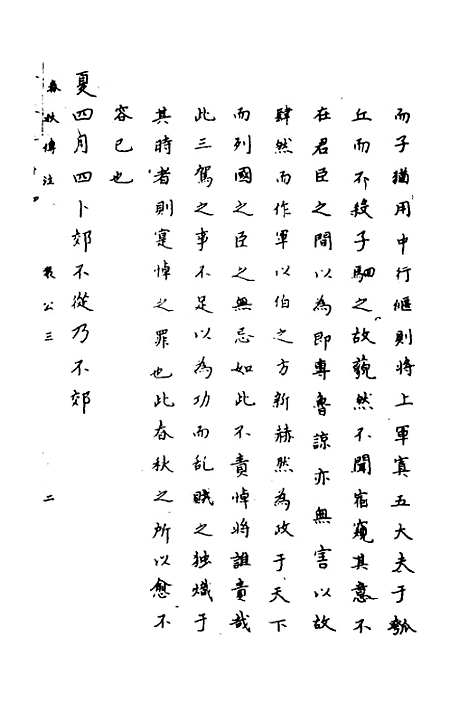 而子猶用中行偃則將上軍寘五大夫于瓠
丘而不殺子駟之故藐然不聞宿窺其意不
在君臣之間以為即專魯諒亦無害以故
肆然而作軍以伯之方新赫然為政于天下
而列國之臣之無忌如此不責悼將誰責哉
此三駕之事不足以為功而乱賊之独熾于
其時者則寔悼之罪也此春秋之所以愈不
容已也
夏四月四卜郊不從乃不郊
春秋傳注 襄公三 二